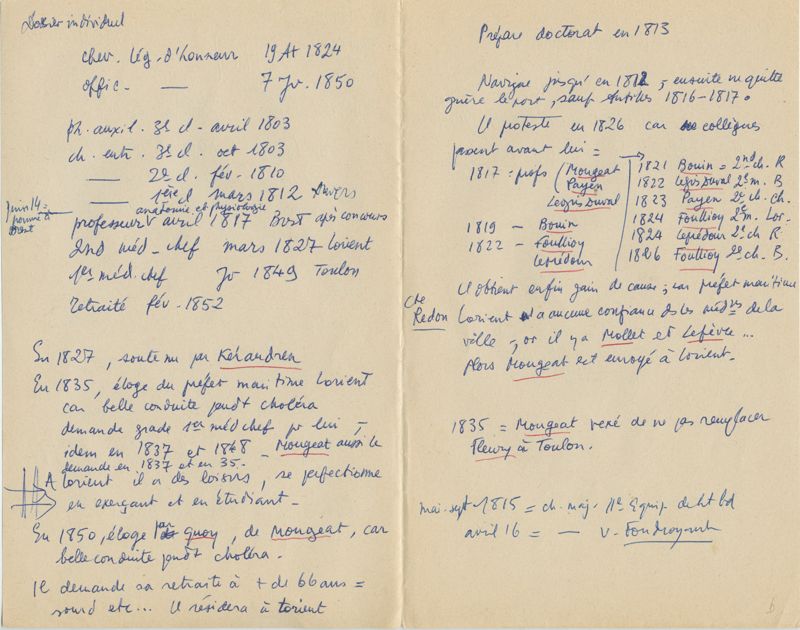 Dossier individuel
chev. lég. d'honneur 19 At 1824
offic. — 7 Jv. 1850
ph. auxil. 3e cl - avril 1803
ch. entr. 3e cl. oct 1803
— 2e cl. fév. 1810
— 1ère cl mars 1812 Anvers
Juin 14 =
nommé à
Brest
anatomie et physiologie
professeur avril 1817 Brest après concours
2nd méd-chef mars 1827 Lorient
1er méd. chef Jv 1849 Toulon
Retraité fév. 1852
En 1827, soutenu par Kéraudren
En 1835, éloge du préfet maritime Lorient
car belle conduite pndt choléra
demande grade 1er méd chef pr lui,
idem en 1837 et 1848 - Mougeat aussi le
demande en 1837 et en 35.
A Lorient il a des loisirs, se perfectionne
en exerçant et en étudiant.
En 1850, éloge par Quoy, de Mougeat, car
belle conduite pndt choléra.
Il demande sa retraite à + de 66 ans =
sourd etc... Il résidera à Lorient
Prépare doctorat en 1813
Navigue jusqu'en 1812, ensuite ne quitte
guère le port, sauf Antilles 1816-1817.
Il proteste en 1826 car collègues
passent avant lui =
1817 = profs Mougeat
Payen
Legris Duval
1819 - Bouin
1822 - Foullioy
Leprédour
1821 Bouin = 2nd ch. R
1822 Legris Duval 2e m. B
1823 Payen 2e ch. Ch.
1824 Foullioy 2e m. Lor.
1824 Leprédour 2e ch R.
1826 Foullioy 2e ch. B.
Il obtient enfin gain de cause, car préfet maritime
Cte
Redon
Lorient n'a aucune confiance ds les médns de la
ville, or il y a Mollet et Lefèvre...
Alors Mougeat est envoyé à Lorient.
1835 = Mougeat vexé de ne pas remplacer
Fleury à Toulon.
mai-sept 1815 = ch. maj. 11e Equip. de ht bd
avril 16 = — v. Foudroyant